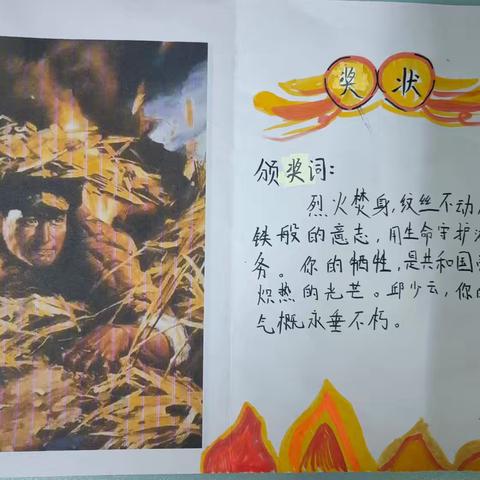 奖状
颁奖词:
烈火焚身,纹丝不动,
铁般的意志,用生命守护
务。你的牺牲,是共和国
炽热的光芒。邱少云,你的
气概永垂不朽。